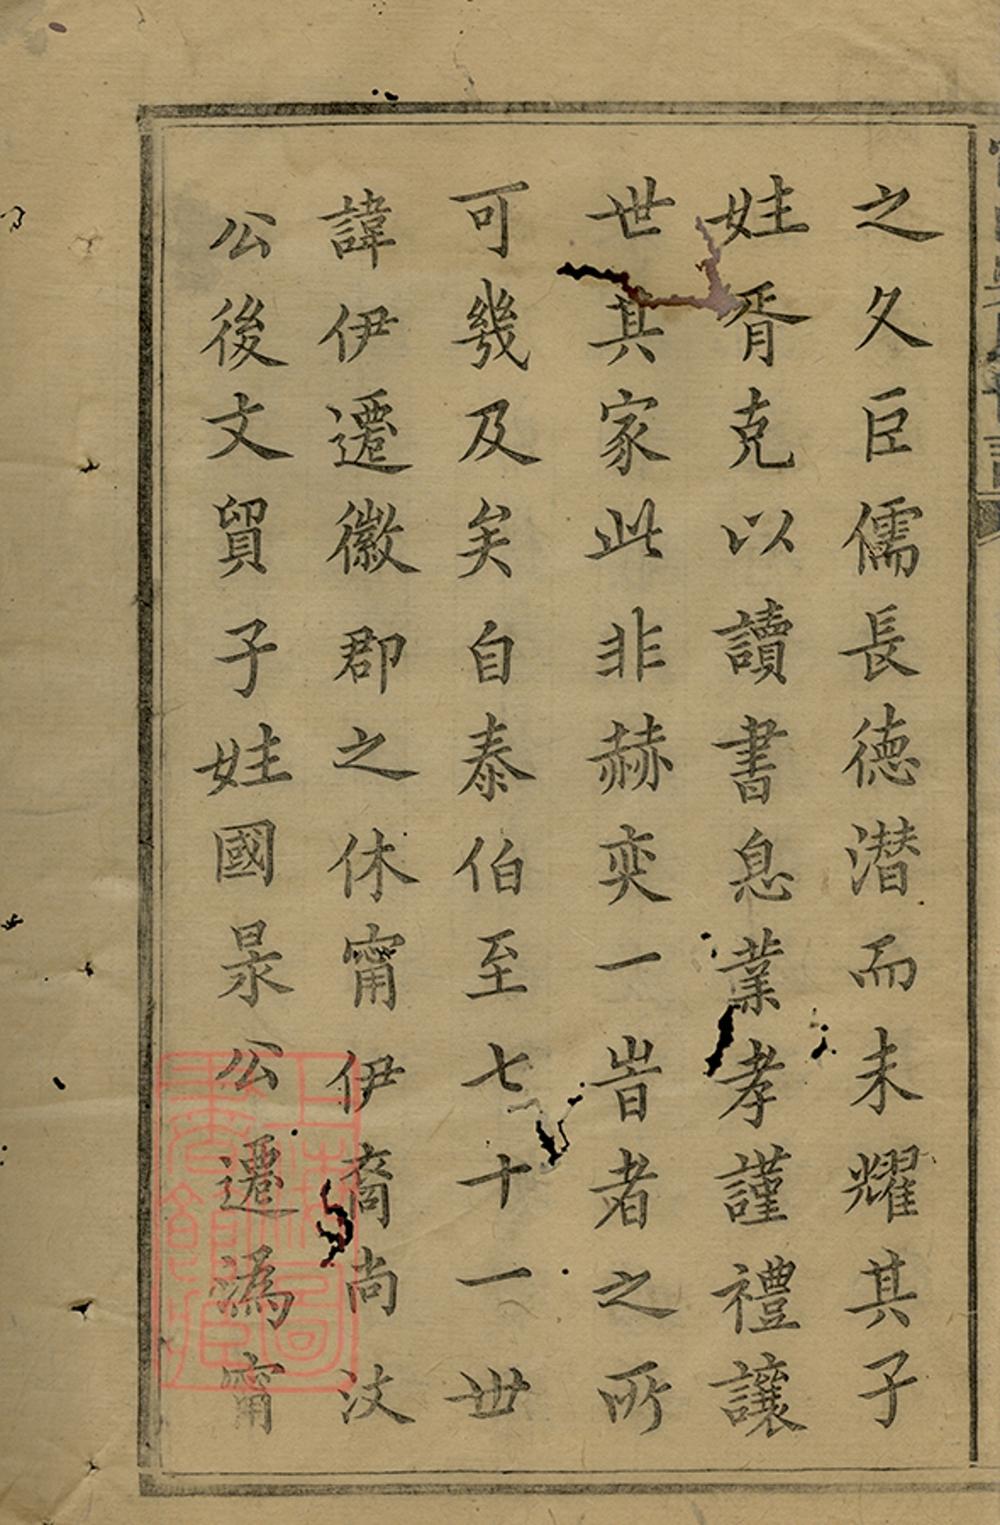 之久臣儒長德潜而未耀其子
姓胥克以讀書息業孝謹禮讓
世其家此非赫奕一旹者之所
可幾及矣自泰伯至七十一世
諱伊遷徽郡之休甯伊裔尚汶
公後文貿子姓國㫤公遷潙甯
上海圖書館藏